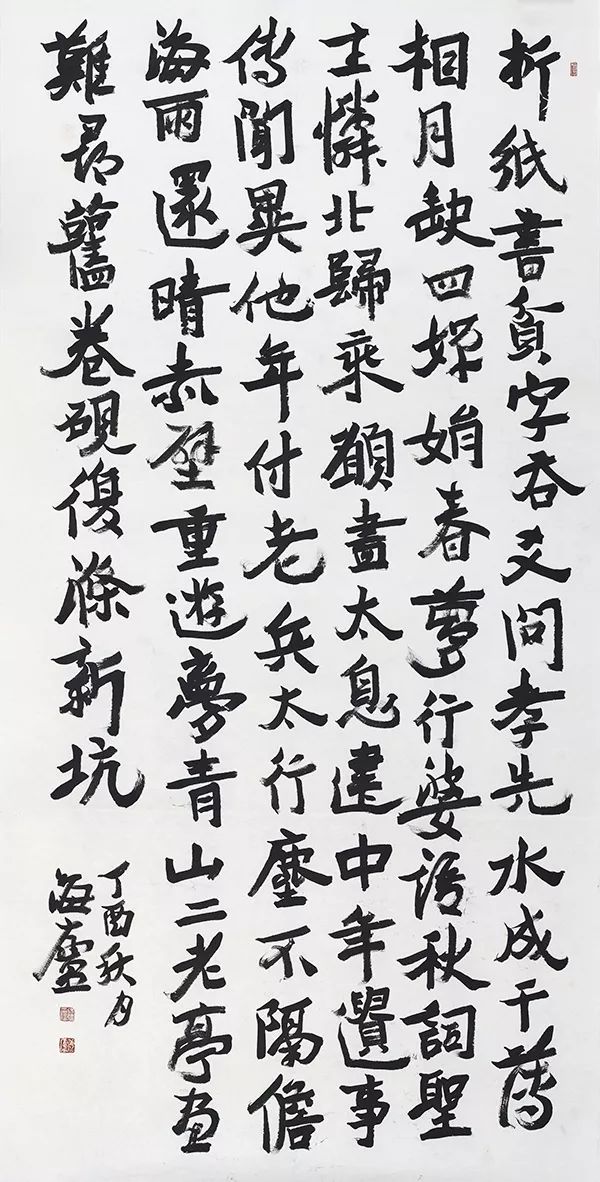 折紙書貧字吞爻問孝先水成干薄
相月缺四嬋娟春夢行婆語秋詞聖
主憐北歸乘願盡太息建中年遺事
傳聞異他年付老兵太行塵不隔儋
海雨還晴赤壁重遊夢青山二老亭畫
難尋舊卷硯復滌新坑
丁酉秋月
海廬